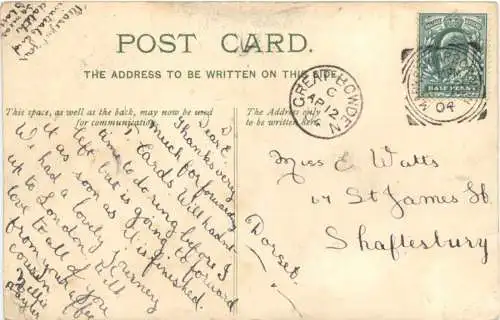 POST CARD.
THE ADDRESS TO BE WRITTEN ON THIS SIDE.
This space, as well as the back, may now be used
for communication.
The Address only
to be written here.
HALF PENNY
GREAT BOWDEN
C
AP 12
04
Dear E.
Thanks very
much for forwarding
P. Cards. Will hadn't
time to do ring before I
left, but is going to forward
it as soon as it is finished.
We had a lovely journey
up to London. Will
love to all of you
from your affec
cousin
Nellie
Taylor
Miss E Watts
67 St James St
Shaftesbury
Dorset.